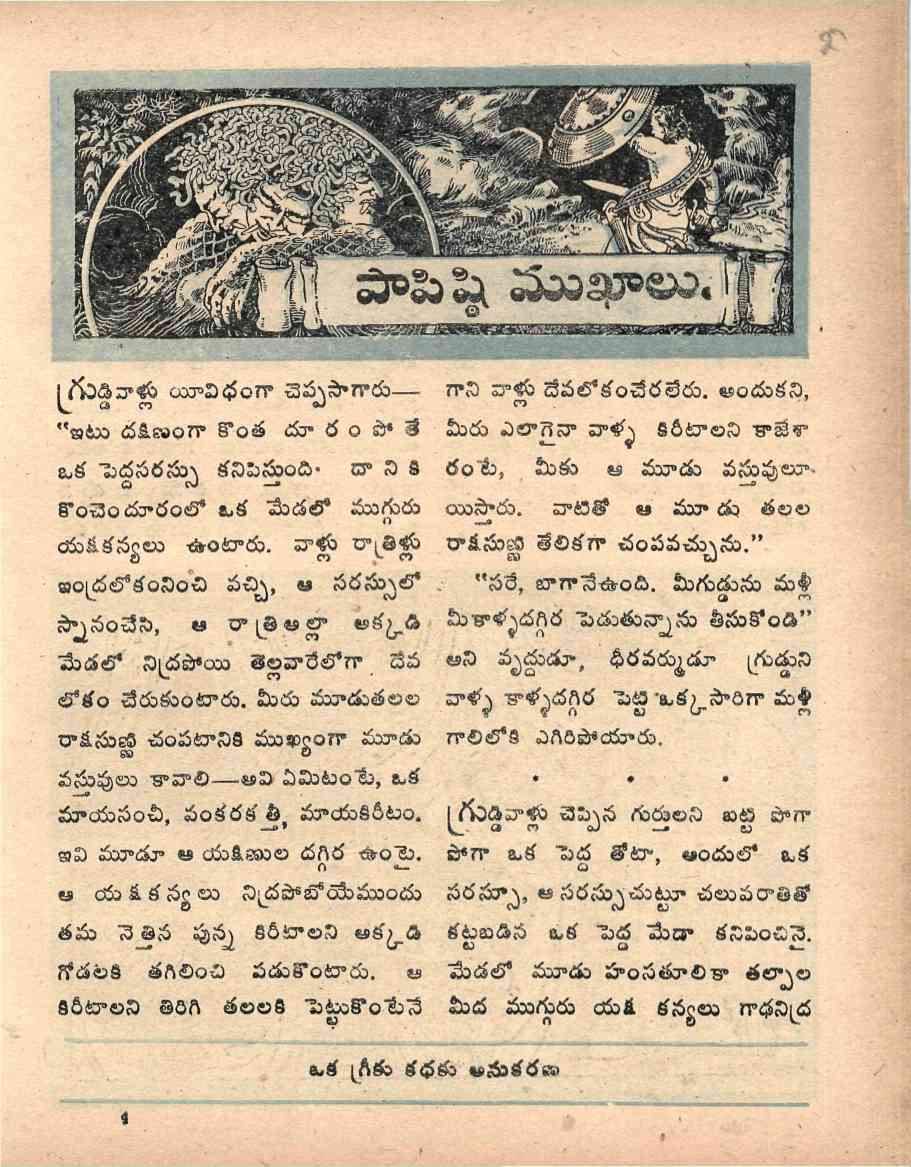 పాపిష్ఠి ముఖాలు.
గ్రుడ్డివాళ్లు యీవిధంగా చెప్పసాగారు—
"ఇటు దక్షిణంగా కొంత దూ ర ం పో తే
ఒక పెద్దసరస్సు కనిపిస్తుంది. దా ని కి
కొంచెందూరంలో ఒక మేడలో ముగ్గురు
యక్షకన్యలు ఉంటారు. వాళ్లు రాత్రిళ్లు
ఇంద్రలోకంనించి వచ్చి, ఆ సరస్సులో
స్నానంచేసి, ఆ రా త్రిఅల్లా అక్కడి
మేడలో నిద్రపోయి తెల్లవారేలోగా దేవ
లోకం చేరుకుంటారు. మీరు మూడుతలల
రాక్షసుణ్ణి చంపటానికి ముఖ్యంగా మూడు
వస్తువులు కావాలి—అవి ఏమిటంటే, ఒక
మాయసంచీ, వంకరక త్తీ, మాయకిరీటం.
ఇవి మూడూ ఆ యక్షిణుల దగ్గిర ఉంటై.
ఆ య క్ష క న్య లు నిద్రపోబోయేముందు
తమ నె త్తిన పున్న కిరీటాలని అక్కడి
గోడలకి తగిలించి పడుకొంటారు. ఆ
కిరీటాలని తిరిగి తలలకి పెట్టుకొంటేనే
గాని వాళ్లు దేవలోకంచేరలేరు. అందుకని,
మీరు ఎలాగైనా వాళ్ళ కిరీటాలని కాజేశా
రంటే, మీకు ఆ మూడు వస్తువులూ
యిస్తారు. వాటితో ఆ మూ డు తలల
రాక్షసుణ్ణి తేలికగా చంపవచ్చును."
"సరే, బాగానేఉంది. మీగుడ్డును మళ్లీ
మీకాళ్ళదగ్గిర పెడుతున్నాను తీసుకోండి"
అని వృద్ధుడూ, ధీరవర్ముడూ గ్రుడ్డుని
వాళ్ళ కాళ్ళదగ్గిర పెట్టి ఒక్కసారిగా మళ్లీ
గాలిలోకి ఎగిరిపోయారు.
• • •
గ్రుడ్డివాళ్లు చెప్పిన గుర్తులని బట్టి పోగా
పోగా ఒక పెద్ద తోటా, అందులో ఒక
సరస్సూ, ఆ సరస్సుచుట్టూ చలువరాతితో
కట్టబడిన ఒక పెద్ద మేడా కనిపించినై.
మేడలో మూడు హంసతూలికా తల్పాల
మీద ముగ్గురు యక్ష కన్యలు గాఢనిద్ర
ఒక గ్రీకు కథకు అనుకరణ
4